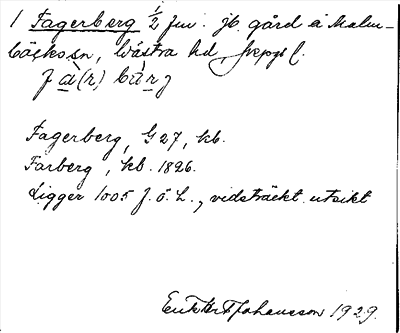 1 Fagerberg 1/2 jm. jb gård å Malm-
bäcks sn, Västra hd, Jkpgs l.
f à (r) bä̀r j
Fagerberg, G 27, kb.
Farberg, kb. 1826.
Ligger 1005 f. ö. h., vidsträckt utsikt
Johansson 1929.